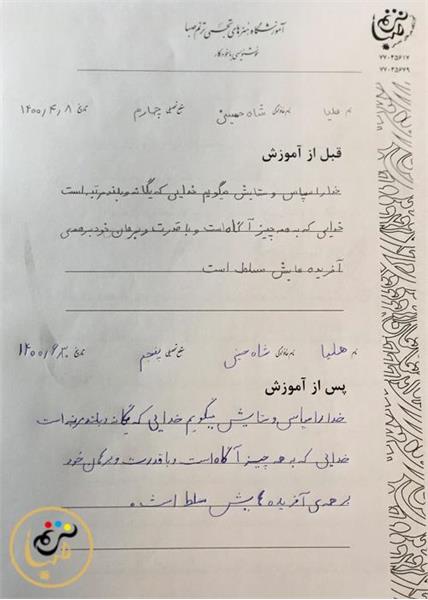 آموزشگاه هنرهای تجسمی ترنم صبا
خوشنویسی با خودکار
ترنم صبا
۷۷۰۴۵۶۱۷
۷۷۰۴۵۶۷۹
نام هلیا نام خانوادگی شاه حسینی مقطع تحصیلی چهارم تاریخ ۱۴۰۰/۴/۸
قبل از آموزش
خدا را سپاس و ستایش میگویم خدایی که یگانه و بلند مرتبه است
خدایی که به همه چیز آگاه است و با قدرت و برهان خود بر همه‌ی
آفریده هایش مسلط است
نام هلیا نام خانوادگی شاه حسینی مقطع تحصیلی پنجم تاریخ ۱۴۰۰/۶/۳۰
پس از آموزش
خدا را سپاس و ستایش میگویم خدایی که یگانه و بلند مرتبه است
خدایی که به همه چیز آگاه است و با قدرت و برهان خود
بر همه‌ی آفریده هایش مسلط است.
ترنم صبا